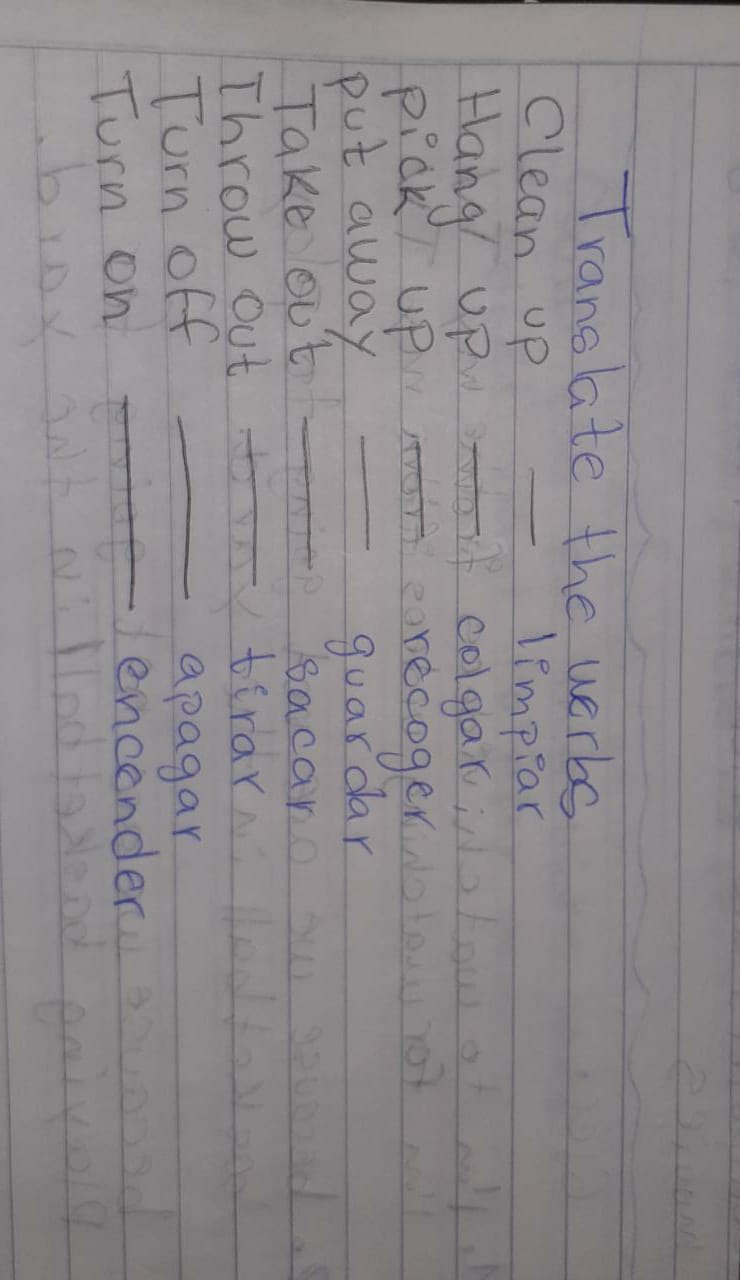 Translate the verbs
Clean up — limpiar
Hang up — colgar
pick up — recoger
put away — guardar
Take out — sacar
Throw out — tirar
Turn off — apagar
Turn on — encender